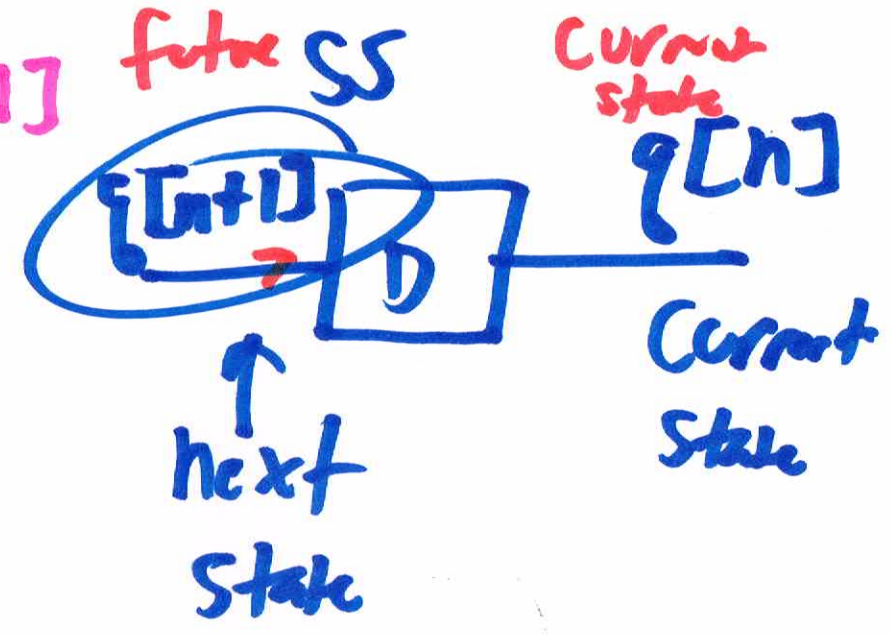 1]
future SS
Current
state
q[n+1]
q[n]
D
Current
state
next
state